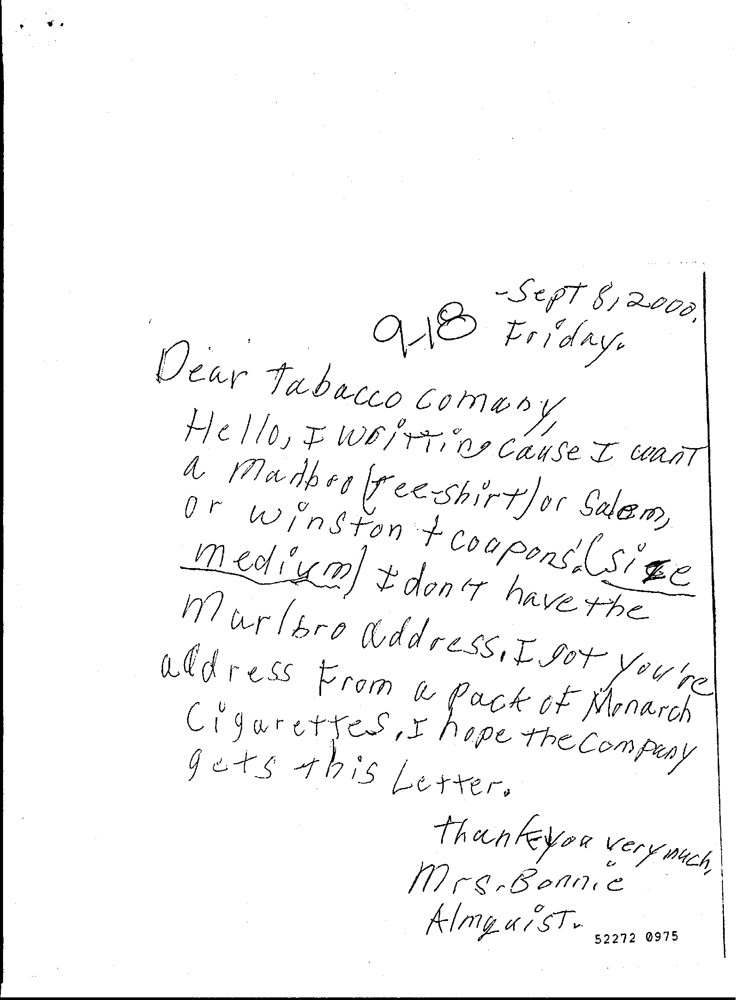 -Sept 8, 2000.
9-18 Friday.
Dear tabacco comany,
Hello, I writting cause I want
a Marlbro (tee-shirt) or Salem,
or winston + coupons. (size
medium) I don't have the
Marlbro address. I got you're
address From a pack of Monarch
Cigarettes. I hope the Company
gets this Letter.
thank you very much,
Mrs. Bonnie
Almquist.
52272 0975